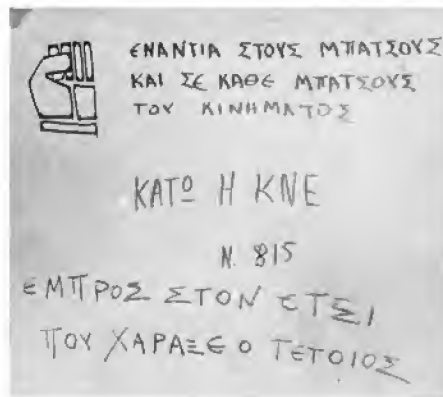 ΕΝΑΝΤΙΑ ΣΤΟΥΣ ΜΠΑΤΣΟΥΣ
ΚΑΙ ΣΕ ΚΑΘΕ ΜΠΑΤΣΟΥΣ
ΤΟΥ ΚΙΝΗΜΑΤΟΣ
ΚΑΤΩ Η ΚΝΕ
Ν. 815
ΕΜΠΡΟΣ ΣΤΟΝ ΕΤΣΙ
ΠΟΥ ΧΑΡΑΞΕ Ο ΤΕΤΟΙΟΣ